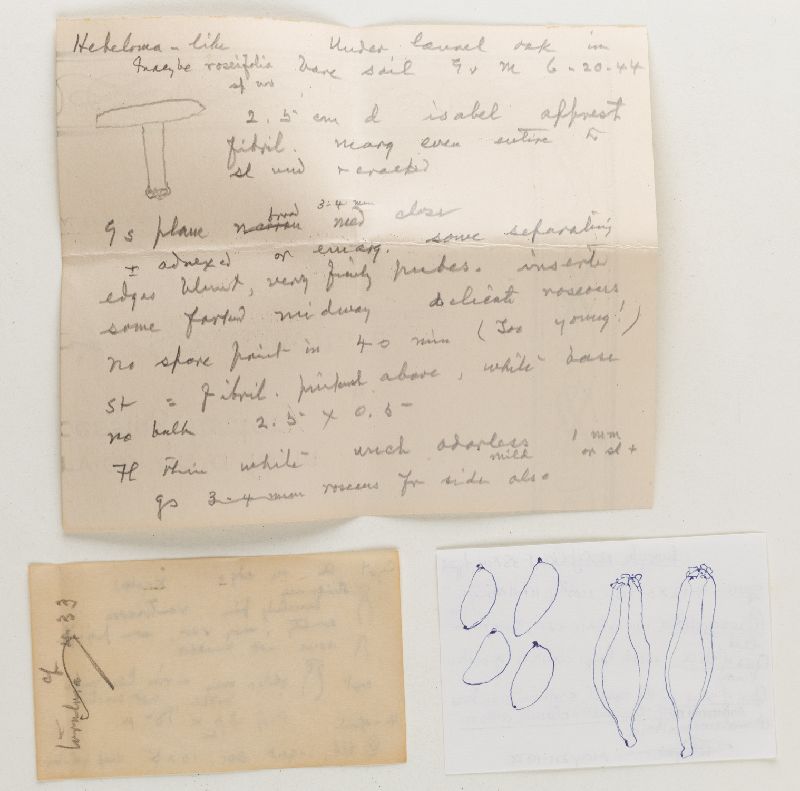 Hebeloma-like Under laurel oak in
Inocybe roseifolia bare soil Gv M 6-20-44
sp nov
2.5 cm d isabel apprest
fibril. marg even entire
sl und r cracked
broad 3-4 mm
Gs plane narrow med close
± adnexed or emarg. some separating
edges blunt, very finely pubes. inserted
some forked midway delicate roseous
no spore print in 40 min (Too young!)
St = fibril. pruinose above, white base
no bulb 2.5 x 0.5
Fl thin white unch odorless 1 mm
mild or sl +
gs 3-4 mm roseous fr side also
of 33